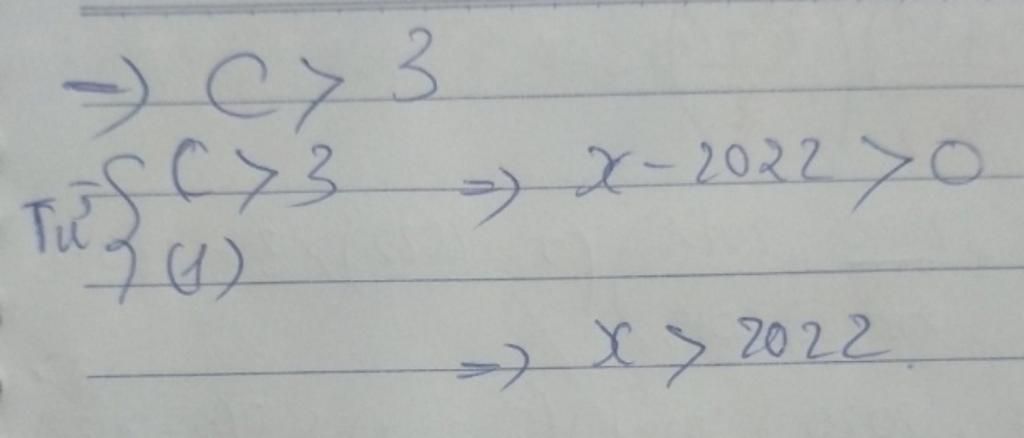 => C > 3
Từ { C > 3 => x - 2022 > 0
(1)
=> x > 2022